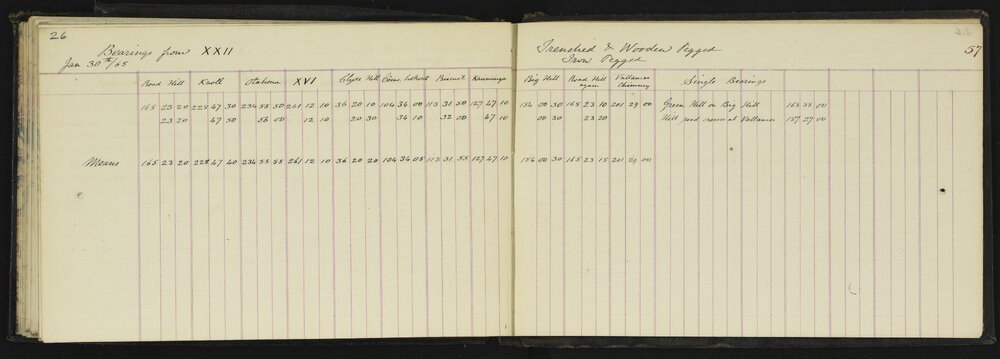 26
Bearings from XXII
Jan 30th/65
Road Hill Knoll Otahoma XVI Clyde Hill Cairn Lookout Burnt Kanawinga
165 23 20 228 47 30 234 55 50 261 12 10 36 20 10 104 34 00 113 31 50 127 47 10
23 20 47 50 56 00 12 10 20 30 34 10 32 00 47 10
Means 165 23 20 228 47 40 234 55 55 261 12 10 36 20 20 104 34 05 113 31 55 127 47 10
57
Trenched & Wooden Pegged
Iron Pegged
Big Hill Road Hill again Vallances Chimney Single Bearings
154 00 30 165 23 10 201 29 00 Green Hill on Big Hill 163 35 00
00 30 23 20 Hill road crosses at Vallances 187 27 00
154 00 30 165 23 15 201 29 00